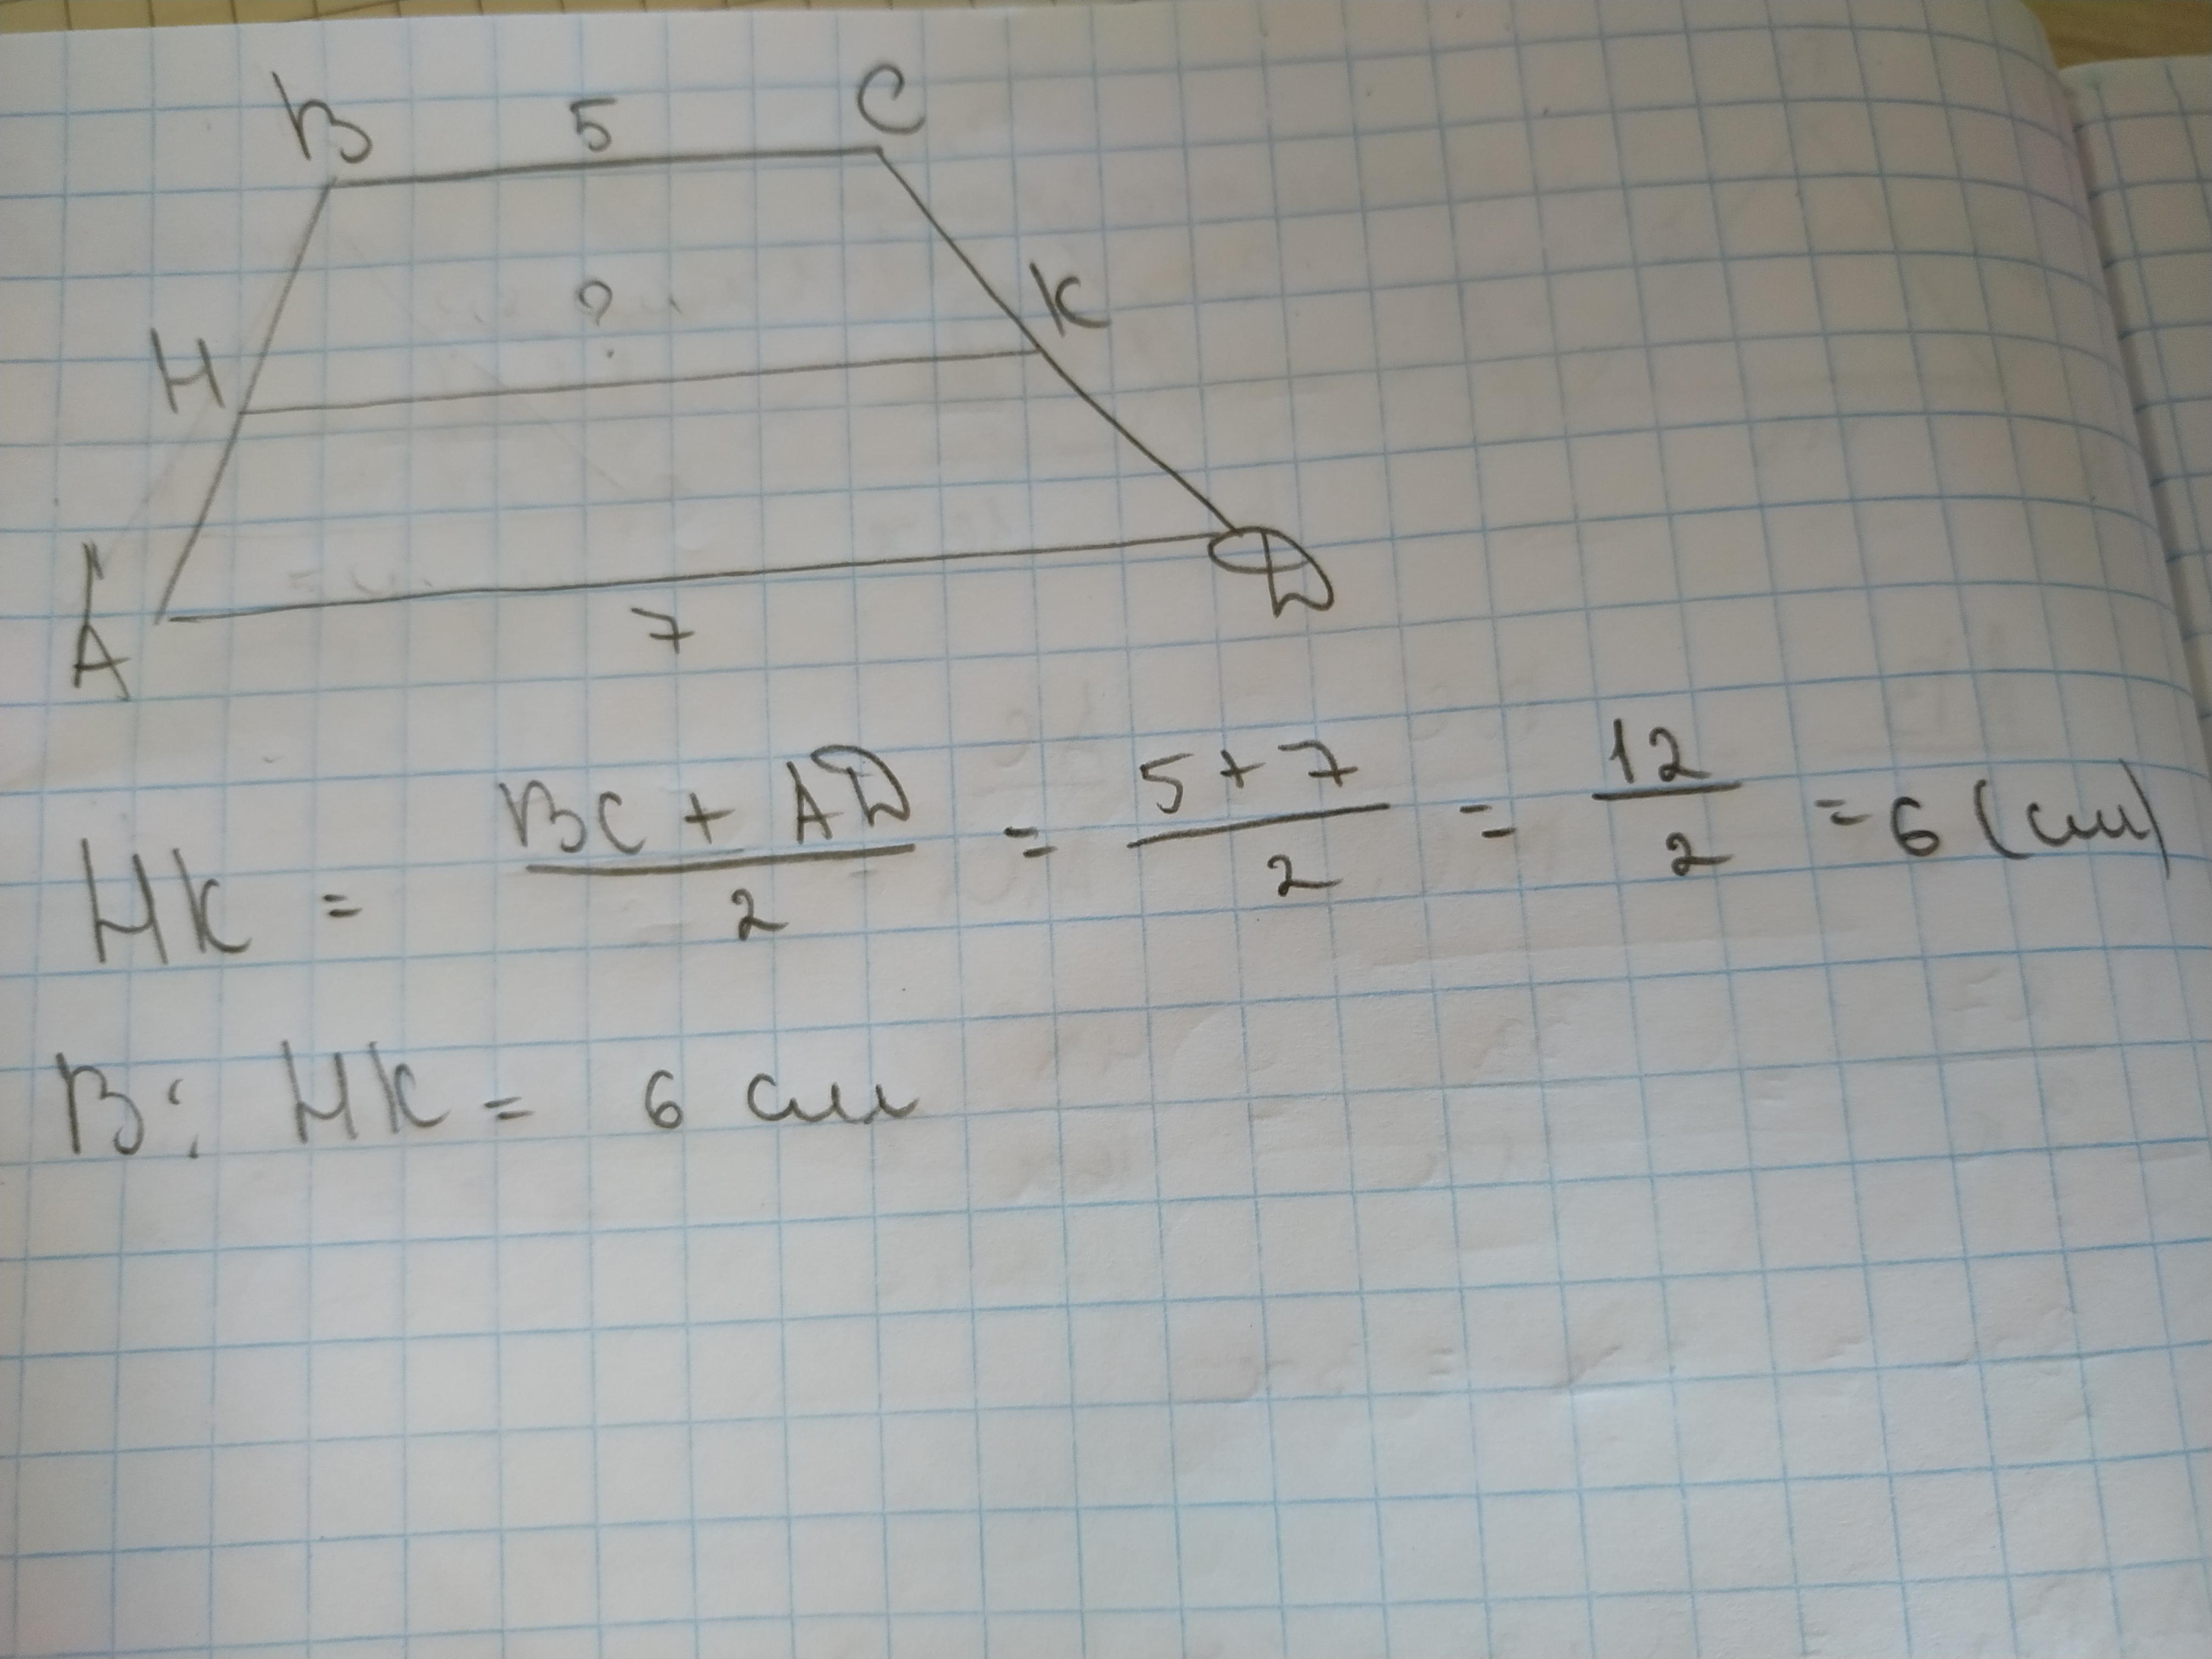 B 5 C
?
H K
A D
7
HK = (BC + AD)/2 = (5 + 7)/2 = 12/2 = 6 (см)
В: HK = 6 см